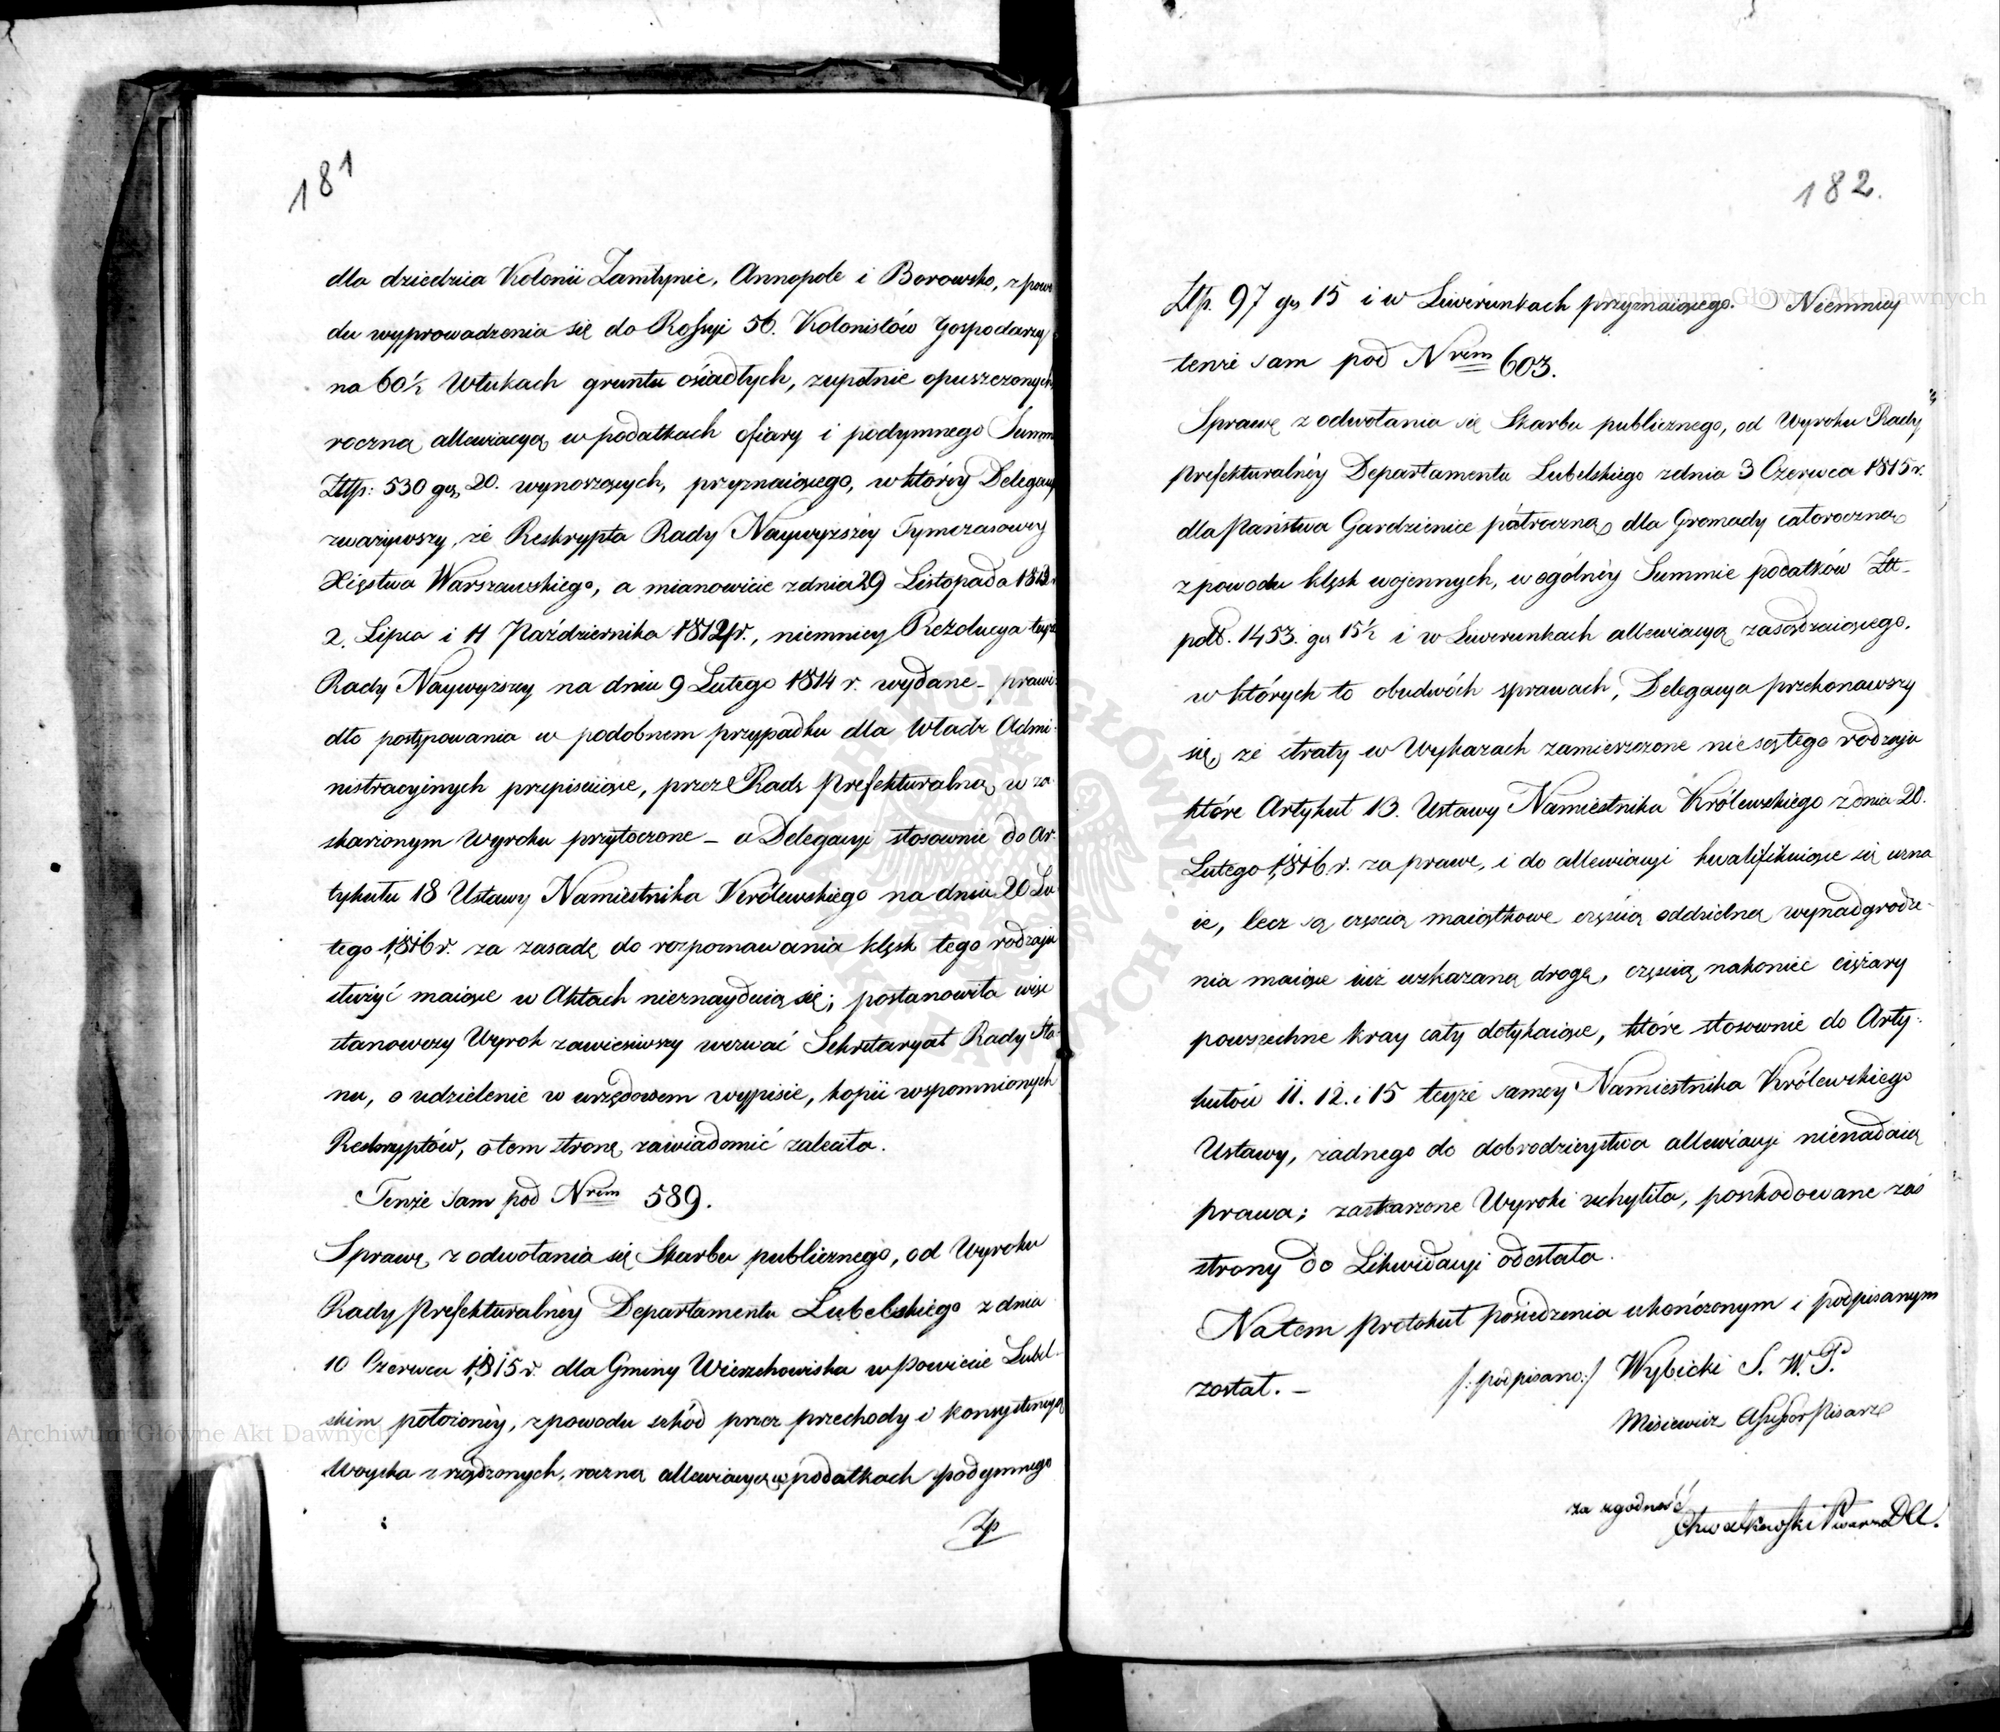 181
dla dziedzica Kolonii Zamłynie, Annopole i Borowsko, z powo
du wyprowadzenia się do Rossyi 56. Kolonistów Gospodarzy
na 60½ Włukach gruntu osiadłych, zupełnie opuszczonych
roczną allewiacyą w podatkach ofiary i podymnego Summ
Złtp: 530 gr, 20. wynoszących, przyznaiącego, w któréy Delegacy
zważywszy, że Reskrypta Rady Naywyższéy Tymczasowey
Xięstwa Warszawskiego, a mianowicie z dnia 29 Listopada
2. Lipca i 11 Października, niemniey Rezolucya teyże
Rady Naywyższey na dniu 9 Lutego 1814 r. wydane – prawi:
dło postępowania w podobnem przypadku dla Władz Admi:
nistracyjnych przepisuiące, przez Radę Prefekturalną w za
skarżonym Wyroku przytoczone – a Delegacyi stosownie do Ar:
tykułu 18 Ustawy Namiestnika Królewskiego na dniu 20 Lu
tego 1816 r. za zasadę do rozpoznawania klęsk tego rodzaju
służyć maiące w Aktach nieznayduią się; postanowiła więc
stanowczy Wyrok zawiesiwszy wezwać Sekretaryat Rady Sta:
nu, o udzielenie w urzędowem wypisie, kopii wspomnionych
Reskryptów, o tem stronę zawiadomić zaleciła.
Tenże sam pod Nrem 589.
Sprawę z odwołania się Skarbu publicznego, od Wyroku
Rady Prefekturalnéy Departamentu Lubelskiego z dnia
10 Czerwca 1815 r. dla Gminy Wierzchowiska w Powiecie Lubel-
skim położonéy, z powodu szkód przez przechody i konsystencyą
Woyska zrządzonych, roczną allewiacyą w podatkach podymnego
Zp
182.
Złtp. 97 gr 15 i w Liwerunkach przyznaiącego. Niemniey
tenże sam pod Nrem 603.
Sprawę z odwołania się Skarbu publicznego, od Wyroku Rady
Prefekturalnéy Departamentu Lubelskiego z dnia 3 Czerwca 1815 r.
dla Państwa Gardzienice półroczną, dla Gromady całoroczną
z powodu klęsk wojennych, w ogólnéy Summie podatków Złt-
pol. 1453. gr 15½ i w Liwerunkach allewiacyą zasądzaiącego.
w których to obudwóch sprawach, Delegacya przekonawszy
się, że straty w Wykazach zamieszczone nie są tego rodzaju
które Artykuł 13. Ustawy Namiestnika Królewskiego z dnia 20.
Lutego 1816 r. za prawe, i do allewiacyi kwalifikuiące się uzna
ie, lecz są częścią maiątkowe częścią oddzielną wynadgrodze-
nia maiące iuż wskazaną drogę, częścią nakoniec ciężary
powszechne kray cały dotykaiące, które stosownie do Arty:
kułów 11. 12. i 15 teyże samey Namiestnika Królewskiego
Ustawy, żadnego do dobrodzieystwa allewiacyi nienadaią
prawa; zaskarżone Wyroki uchyliła, poszkodowane zaś
strony do Likwidacyi odesłała.
Na tem Protokuł posiedzenia ukończonym i podpisanym
został. – /:podpisano:/ Wybicki S. W. P.
Misiewicz Assessor Pisarz
za zgodność
Chwalkowski Pisarz DA.
Archiwum Główne Akt Dawnych
Archiwum Główne Akt Dawnych
ARCHIWUM GŁÓWNE AKT DAWNYCH